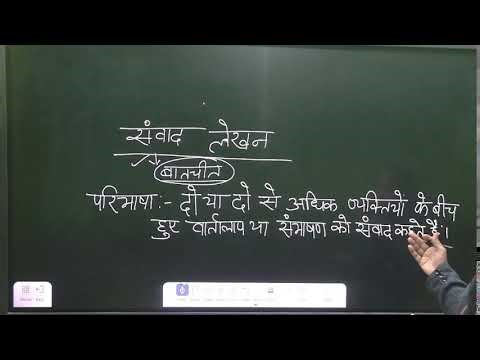 संवाद लेखन
बातचीत
परिभाषा:- दो या दो से अधिक व्यक्तियो के बीच
हुए वार्तालाप या संभाषण को संवाद कहते हैं।